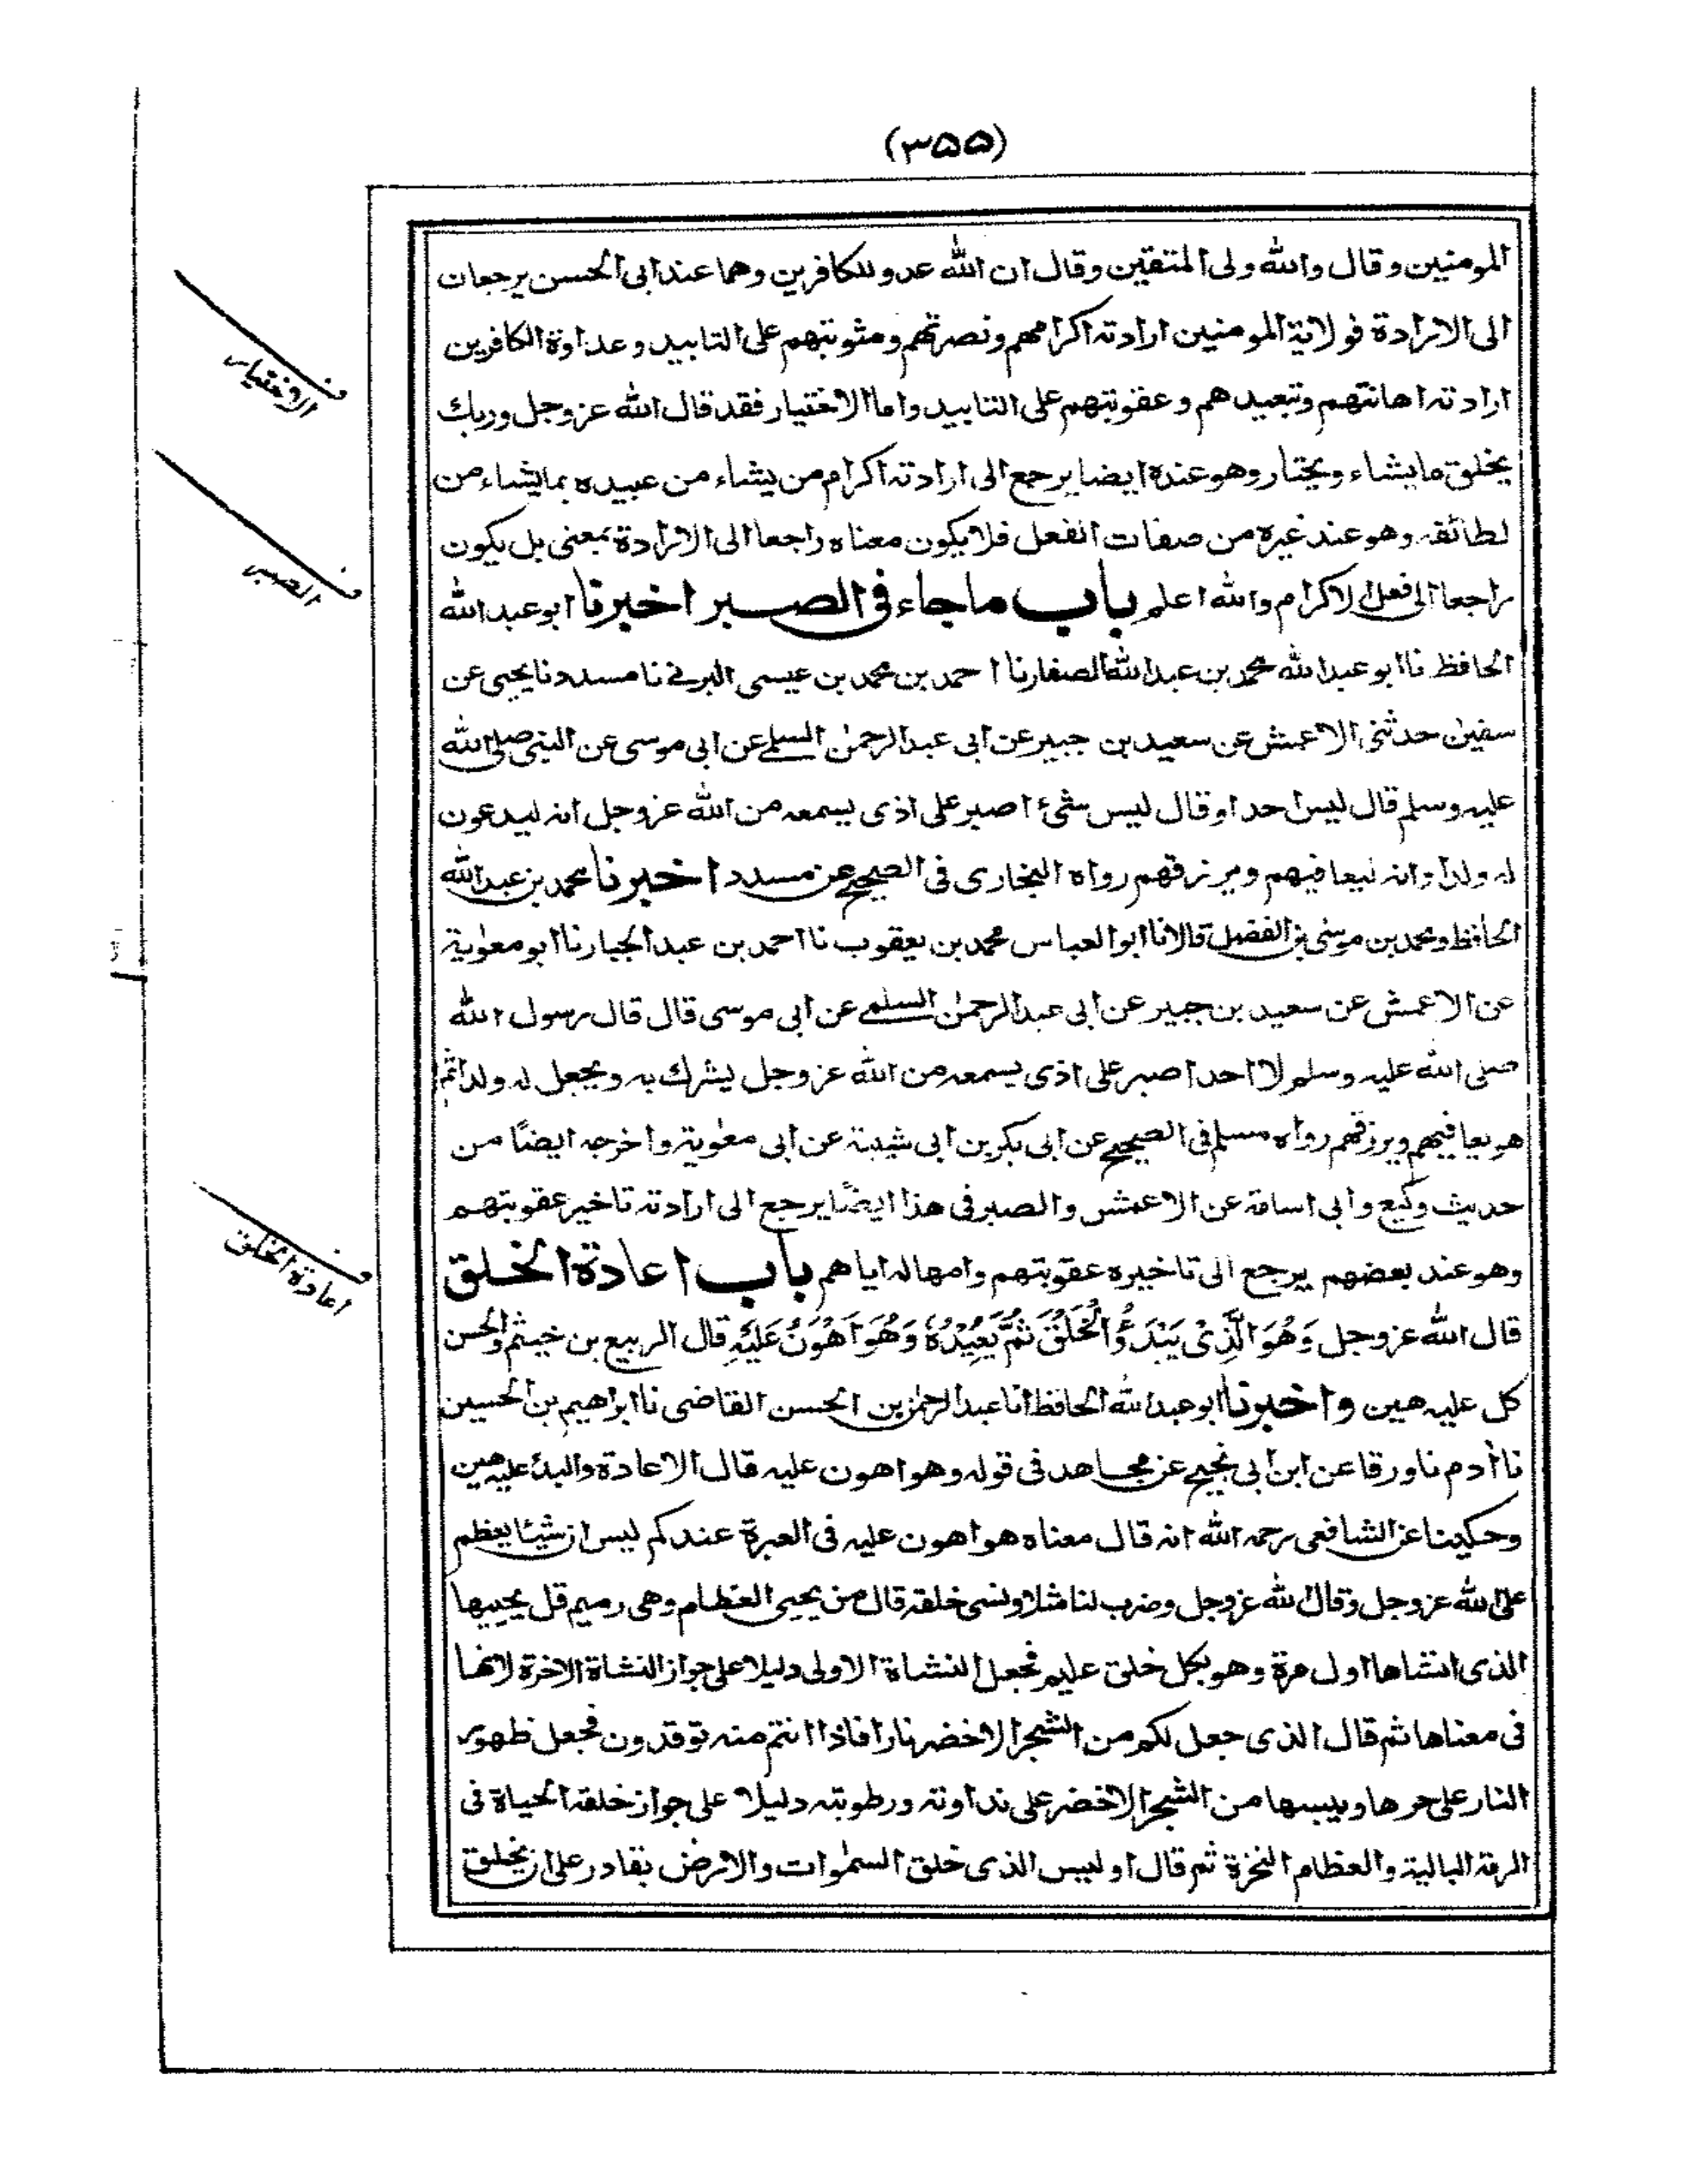 (٣٥٥)
المومنين وقال والله ولى المتقين وقال ان الله عدو للكافرين وهما عند ابى الحسن يرجعان
الى الارادة فولاية المومنين ارادته اكرامهم ونصرتهم ومثوبتهم على التابيد وعداوة الكافرين
ارادته اهانتهم وتبعيدهم وعقوبتهم على التابيد واما الاختيار فقد قال الله عزوجل وربك
يخلق مايشاء ويختار وهو عنده ايضا يرجع الى ارادته اكرام من يشاء من عبيده بمايشاء من
لطائفه وهو عند غيره من صفات الفعل فلا يكون معناه راجعا الى الارادة بمعنى بل يكون
راجعا الى فعل الاكرام والله اعلم باب ماجاء فى الصبر اخبرنا ابو عبد الله
الحافظ نا ابو عبد الله محمد بن عبد الله الصفار نا احمد بن محمد بن عيسى البرتى نا مسدد نا يحيى عن
سفين حدثنى الاعمش عن سعيد بن جبير عن ابى عبد الرحمن السلمى عن ابى موسى عن النبى صلى الله
عليه وسلم قال ليس احد او قال ليس شئ اصبر على اذى يسمعه من الله عزوجل انه ليدعون
له ولدا وانه ليعافيهم ويرزقهم رواه البخارى فى الصحيح عن مسدد اخبرنا محمد بن عبد الله
الحافظ ومحمد بن موسى بن الفضل قالا نا ابو العباس محمد بن يعقوب نا احمد بن عبد الجبار نا ابو معوية
عن الاعمش عن سعيد بن جبير عن ابى عبد الرحمن السلمى عن ابى موسى قال قال رسول الله
صلى الله عليه وسلم لا احد اصبر على اذى يسمعه من الله عزوجل يشرك به ويجعل له ولدا ثم
هو يعافيهم ويرزقهم رواه مسلم فى الصحيح عن ابى بكر بن ابى شيبة عن ابى معوية واخرجه ايضًا من
حديث وكيع وابى اسامة عن الاعمش والصبر فى هذا ايضًا يرجع الى ارادته تاخير عقوبتهم
وهو عند بعضهم يرجع الى تاخيره عقوبتهم وامهاله اياهم باب اعادة الخلق
قال الله عزوجل وَهُوَ الَّذِىْ يَبْدَؤُا الْخَلْقَ ثُمَّ يُعِيْدُهٗ وَهُوَ اَهْوَنُ عَلَيْهِ قال الربيع بن خيثم والحسن
كل عليه هين واخبرنا ابو عبد الله الحافظ انا عبد الرحمن بن الحسن القاضى نا ابراهيم بن الحسين
نا آدم نا ورقا عن ابن ابى نجيح عن مجاهد فى قوله وهو اهون عليه قال الاعادة والبدء عليه هين
وحكينا عن الشافعى رحمه الله انه قال معناه هو اهون عليه فى العبرة عندكم ليس ان شيئا يعظم
على الله عزوجل وقال الله عزوجل وضرب لنا مثلا ونسى خلقه قال من يحيى العظام وهى رميم قل يحييها
الذى انشاها اول مرة وهو بكل خلق عليم فجعل النشاة الاولى دليلا على جواز النشاة الاخرة لانها
فى معناها ثم قال الذى جعل لكم من الشجر الاخضر نارا فاذا انتم منه توقدون فجعل ظهور
النار على حرها ويبسها من الشجر الاخضر على نداوته ورطوبته دليلا على جواز خلقه الحياة فى
الرمة البالية والعظام النخرة ثم قال او ليس الذى خلق السموات والارض بقادر على ان يخلق
الاختيار
الصبر
اعادة الخلق